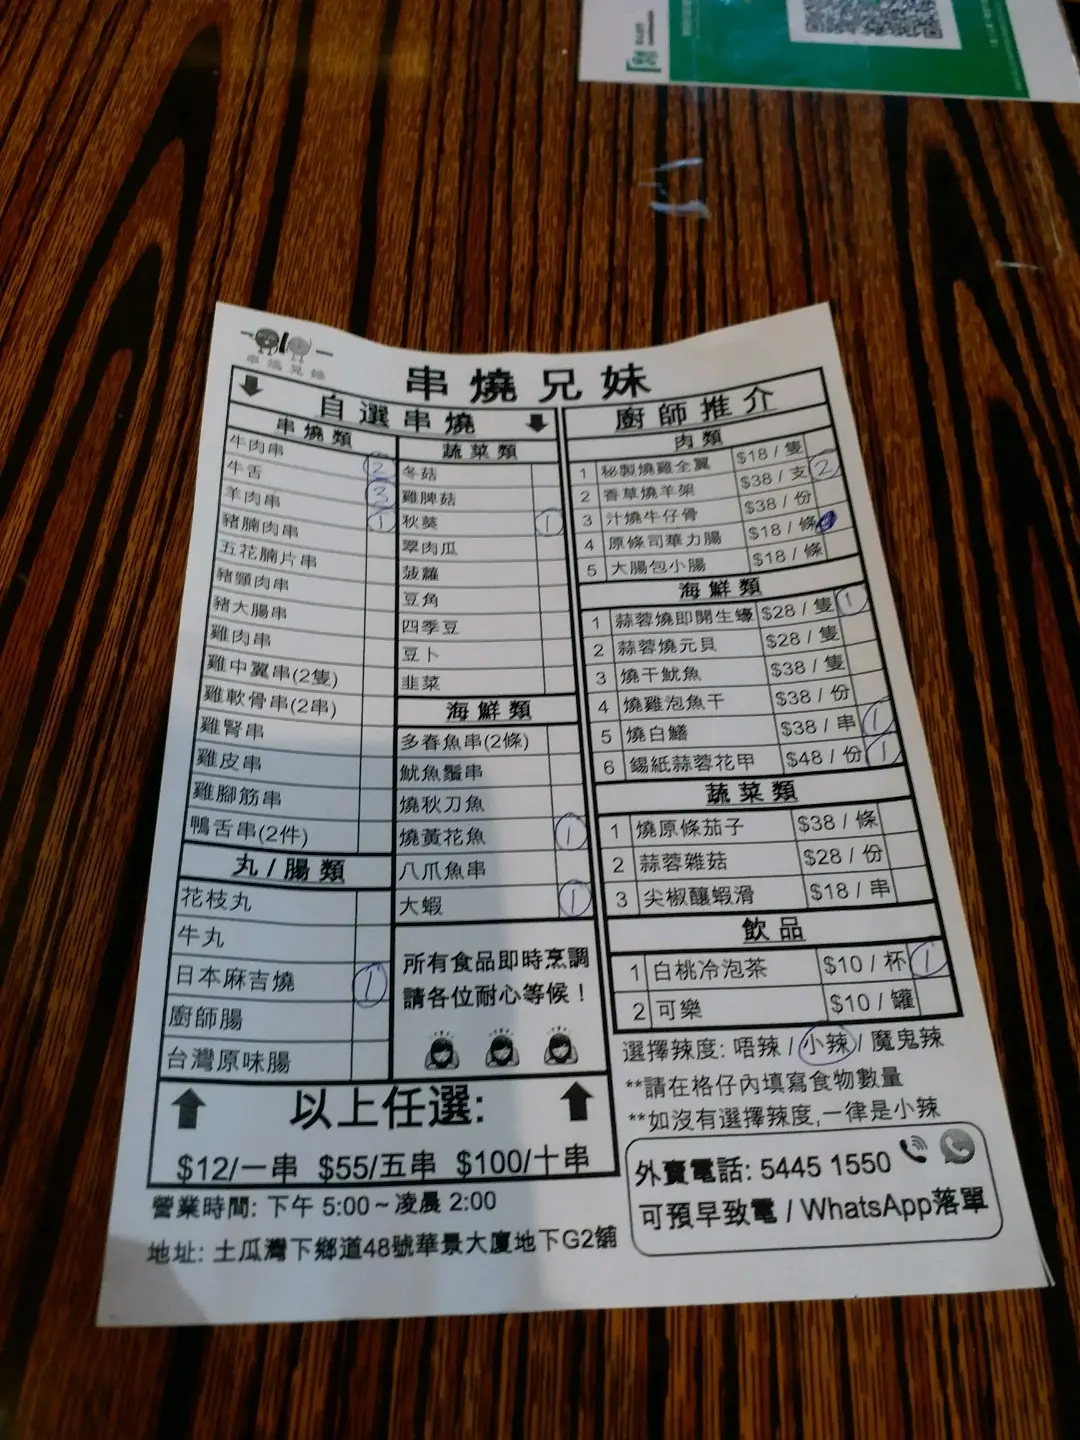 串燒兄妹
串燒兄妹
自選串燒
串燒類
牛肉串 2
牛舌 3
羊肉串 1
豬腩肉串
五花腩片串
豬頸肉串
豬大腸串
雞肉串
雞中翼串(2隻)
雞軟骨串(2串)
雞腎串
雞皮串
雞腳筋串
鴨舌串(2件)
丸/腸類
花枝丸
牛丸
日本麻吉燒 1
廚師腸
台灣原味腸
蔬菜類
冬菇
雞脾菇
秋葵 1
翠肉瓜
菠蘿
豆角
四季豆
豆卜
韭菜
海鮮類
多春魚串(2條)
魷魚鬚串
燒秋刀魚
燒黃花魚 1
八爪魚串
大蝦 1
所有食品即時烹調
請各位耐心等候!
以上任選:
$12/一串 $55/五串 $100/十串
營業時間: 下午 5:00 ~ 凌晨 2:00
地址: 土瓜灣下鄉道48號華景大廈地下G2舖
廚師推介
肉類
1 秘製燒雞全翼 $18 / 隻
2 香草燒羊架 $38 / 支 2
3 汁燒牛仔骨 $38 / 份
4 原條司華力腸 $18 / 條
5 大腸包小腸 $18 / 條
海鮮類
1 蒜蓉燒即開生蠔 $28 / 隻 1
2 蒜蓉燒元貝 $28 / 隻
3 燒干魷魚 $38 / 隻
4 燒雞泡魚干 $38 / 份
5 燒白鱔 $38 / 串 1
6 錫紙蒜蓉花甲 $48 / 份 1
蔬菜類
1 燒原條茄子 $38 / 條
2 蒜蓉雜菇 $28 / 份
3 尖椒釀蝦滑 $18 / 串
飲品
1 白桃冷泡茶 $10 / 杯 1
2 可樂 $10 / 罐
選擇辣度: 唔辣 / 小辣 / 魔鬼辣
**請在格仔內填寫食物數量
**如沒有選擇辣度, 一律是小辣
外賣電話: 5445 1550
可預早致電 / WhatsApp落單